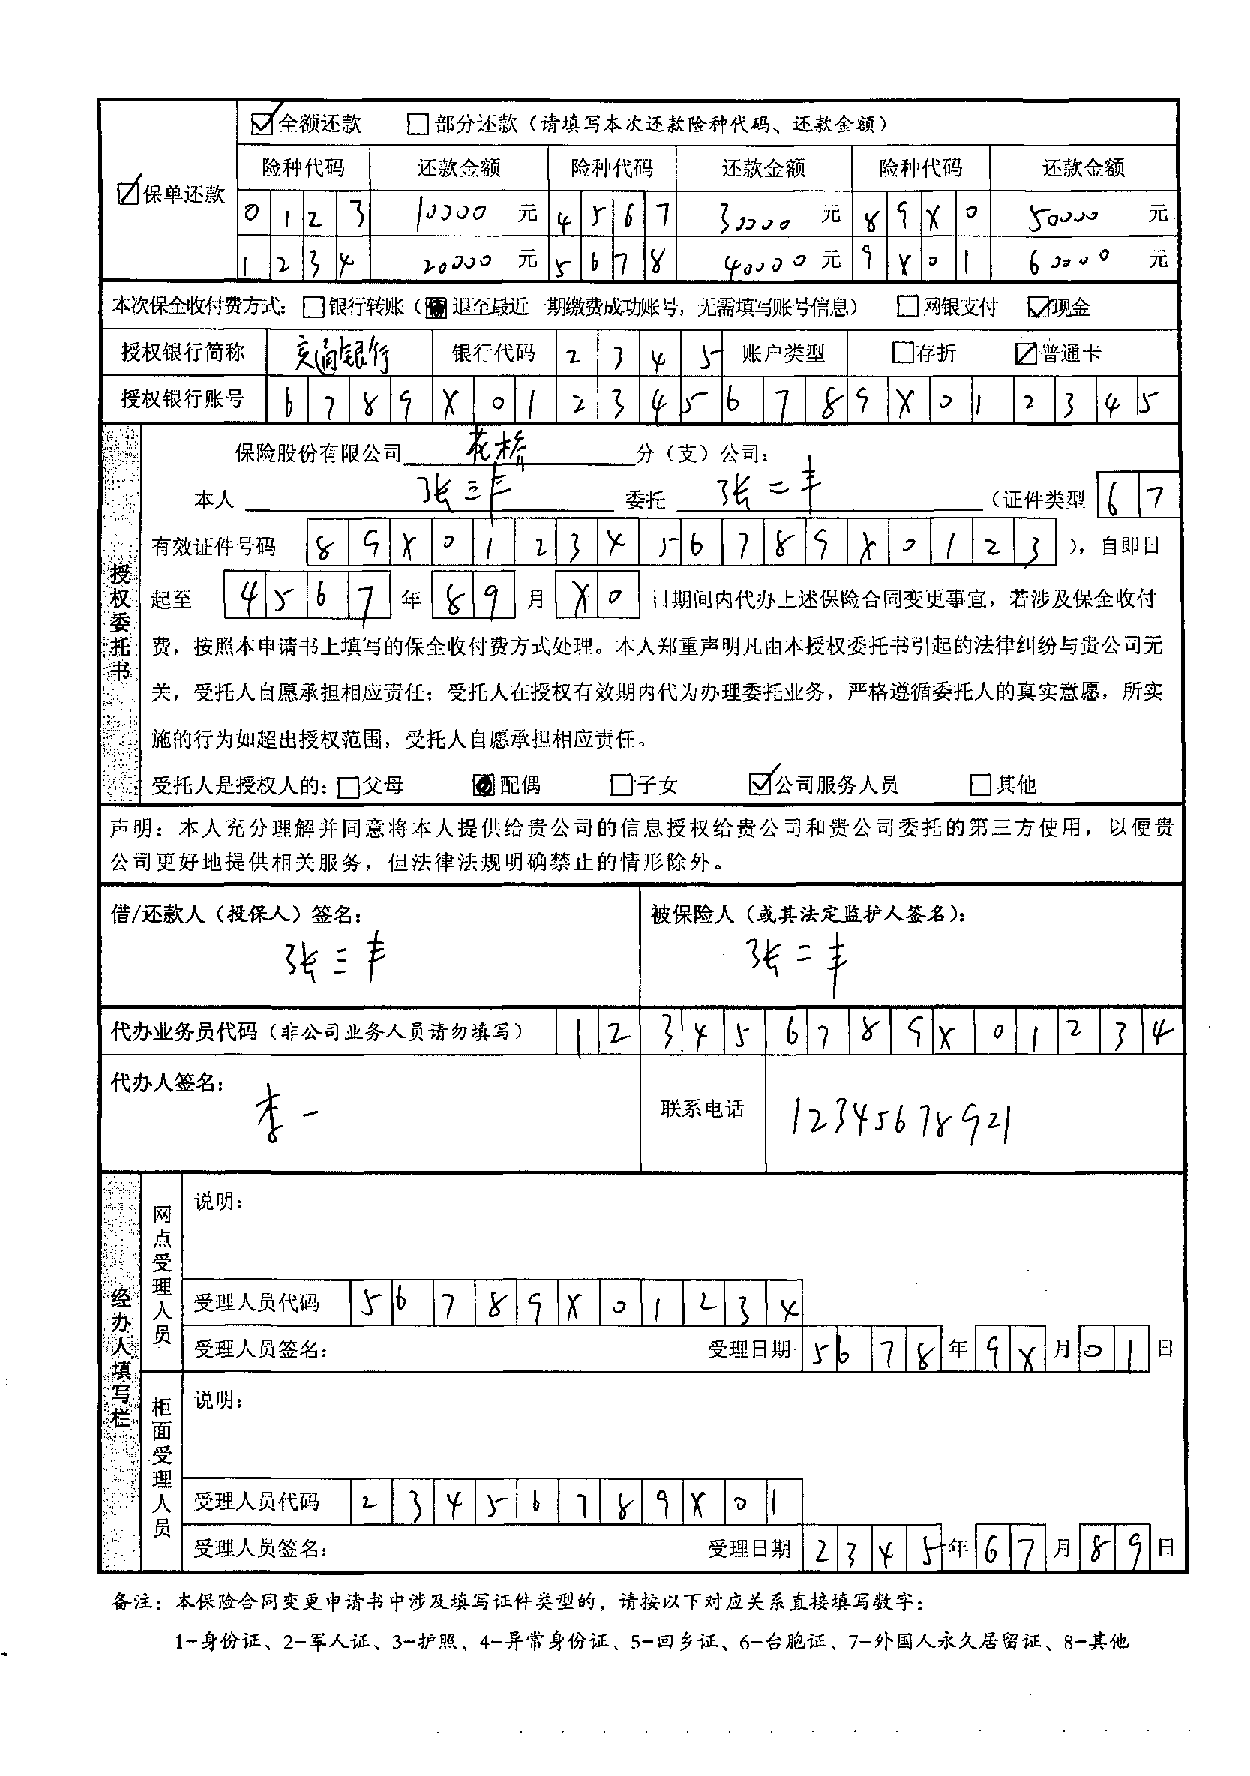 ☑全额还款 □部分还款（请填写本次还款险种代码、还款金额）
☑保单还款
险种代码 还款金额 险种代码 还款金额 险种代码 还款金额
0 1 2 3 10000 元 4 5 6 7 30000 元 8 9 X 0 50000 元
1 2 3 4 20000 元 5 6 7 8 40000 元 9 X 0 1 60000 元
本次保全收付费方式：□银行转账（■退至最近一期缴费成功账号，无需填写账号信息） □网银支付 ☑现金
授权银行简称 交通银行 银行代码 2 3 4 5 账户类型 □存折 ☑普通卡
授权银行账号 6 7 8 9 X 0 1 2 3 4 5 6 7 8 9 X 0 1 2 3 4 5
授权委托书
保险股份有限公司 花桥 分（支）公司：
本人 张三丰 委托 张二丰 （证件类型 6 7
有效证件号码 8 9 X 0 1 2 3 4 5 6 7 8 9 X 0 1 2 3 ），自即日
起至 4 5 6 7 年 8 9 月 X 0 日期间内代办上述保险合同变更事宜，若涉及保全收付
费，按照本申请书上填写的保全收付费方式处理。本人郑重声明凡由本授权委托书引起的法律纠纷与贵公司无
关，受托人自愿承担相应责任；受托人在授权有效期内代为办理委托业务，严格遵循委托人的真实意愿，所实
施的行为如超出授权范围，受托人自愿承担相应责任。
受托人是授权人的：□父母 ■配偶 □子女 ☑公司服务人员 □其他
声明：本人充分理解并同意将本人提供给贵公司的信息授权给贵公司和贵公司委托的第三方使用，以便贵
公司更好地提供相关服务，但法律法规明确禁止的情形除外。
借/还款人（投保人）签名： 被保险人（或其法定监护人签名）：
张三丰 张二丰
代办业务员代码（非公司业务人员请勿填写） 1 2 3 4 5 6 7 8 9 X 0 1 2 3 4
代办人签名：
李一 联系电话 12345678921
经办人填写栏
网点受理人员
说明：
受理人员代码 5 6 7 8 9 X 0 1 2 3 4
受理人员签名： 受理日期 5 6 7 8 年 9 X 月 0 1 日
柜面受理人员
说明：
受理人员代码 2 3 4 5 6 7 8 9 X 0 1
受理人员签名： 受理日期 2 3 4 5 年 6 7 月 8 9 日
备注：本保险合同变更申请书中涉及填写证件类型的，请按以下对应关系直接填写数字：
1-身份证、2-军人证、3-护照、4-异常身份证、5-回乡证、6-台胞证、7-外国人永久居留证、8-其他